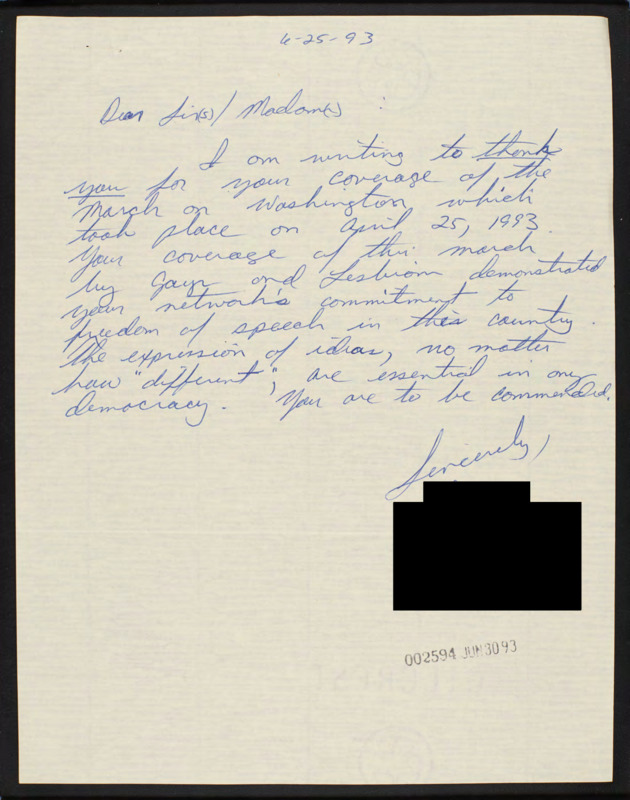 6-25-93
Dear Sir(s)/ Madam(s) :
I am writing to thank
you for your coverage of the
March on Washington which
took place on April 25, 1993.
Your coverage of this march
by Gays and Lesbians demonstrated
your network's commitment to
freedom of speech in this country.
The expression of ideas, no matter
how "different", are essential in any
democracy. You are to be commended.
Sincerely,
002594 JUN3093